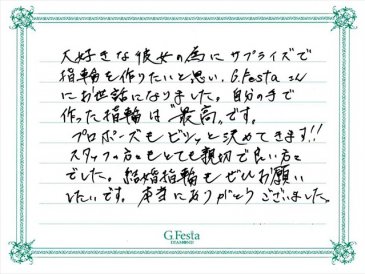 大好きな彼女の為にサプライズで
指輪を作りたいと思い、G.Festaさん
にお世話になりました。自分の手で
作った指輪は"最高"です。
プロポーズもビシッと決めてきます!!
スタッフの方もとても親切で良い方
でした。結婚指輪もぜひお願い
したいです。本当にありがとうございました。
G.Festa
DIAMOND